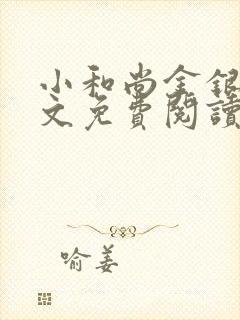 小和尚金银
文免費閱讀
喻姜